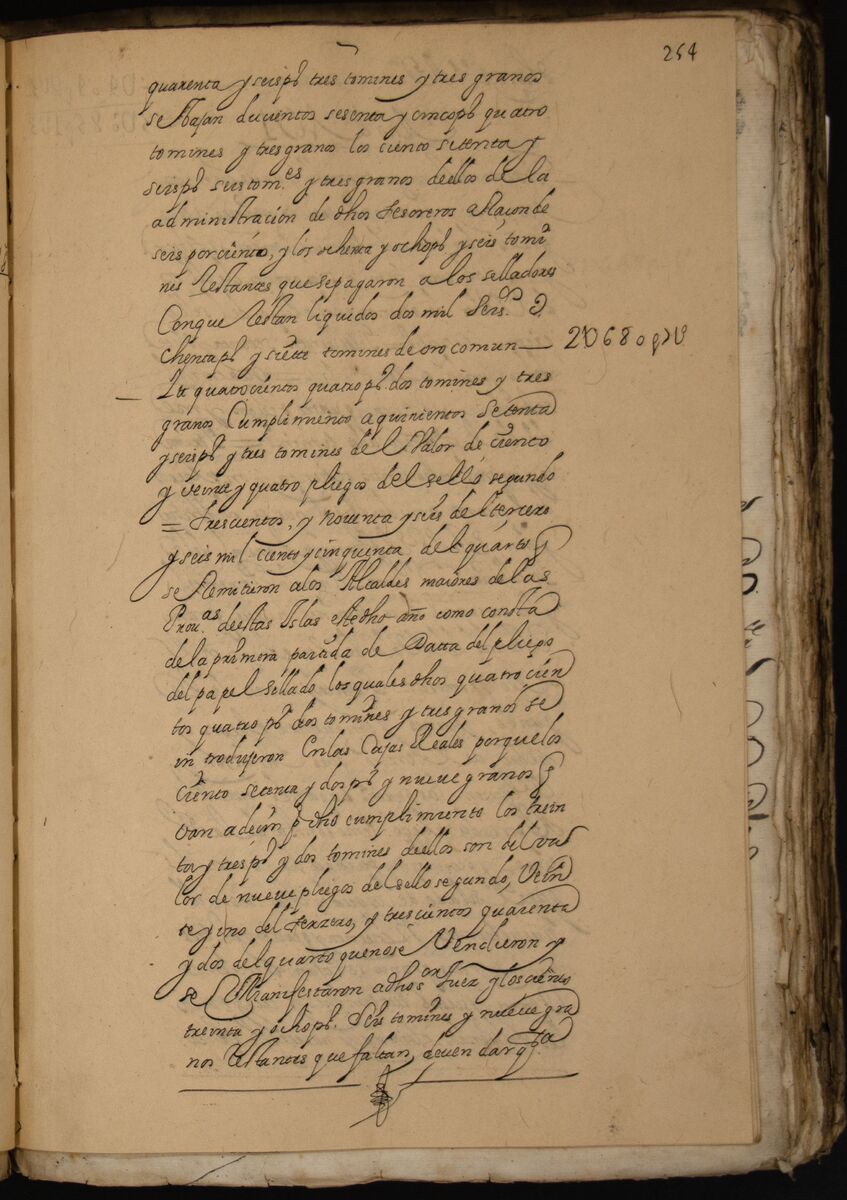 254
quarenta y seisps tres tomines y tres granos
se Bajan ducientos sesenta y cincops quatro
tomines y tres granos los ciento setenta y
seisps seis tom.es y tres granos deellos de la
administracion de dhos tesoreros a Raçon de
seis porciento, y los ochenta y ochops y seis tomi
nes Restantes que se pagaron a los selladores
Conque Restan liquidos dos mil Seis.os O
chentaps y siete tomines de oro comun — 2U680ps7
— Yt quatrocientos quatrops dos tomines y tres
granos Cumplimiento a quinientos Setenta
y seisps y tres tomines del Valor de ciento
y veinte y quatro pliegos del sello segundo
= Trescientos, y noventa y seis del tercero
y seis mil ciento y cinquenta del quarto q
se Remitieron a los Alcaldes maiores de las
Prou.as destas Islas estedho año como consta
de la primera partida de Datta del pliego
del papel Sellado los quales dhos quatrocien
tos quatro ps dos tomines y tres granos se
introdujeron En las Cajas Reales porque los
ciento setenta y dos ps y nueve granos q
van a decir pa dho cumplimiento los trein
ta y tresps y dos tomines deellos son del va
lor de nueve pliegos del sello segundo, Vein
te y uno del terzero, y trescientos quarenta
y dos del quarto que no se Vendieron y
se Manifestaron a dho s.or Juez y los ciento
treinta y ochops. Seis tomines y nueve gra
nos Restantes que faltan, deven dar q.ta